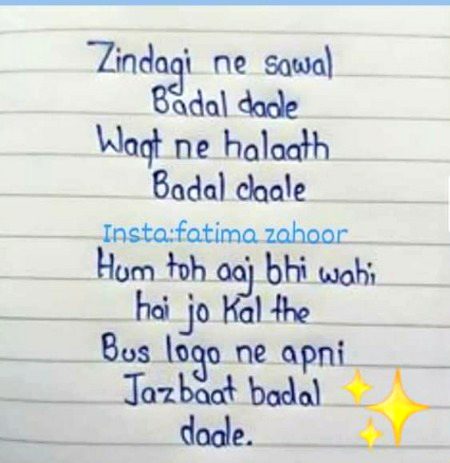 Zindagi ne sawal
Badal daale
Waqt ne halaath
Badal daale
Insta:fatima zahoor
Hum toh aaj bhi wahi
hai jo Kal the
Bus logo ne apni
Jazbaat badal
daale.